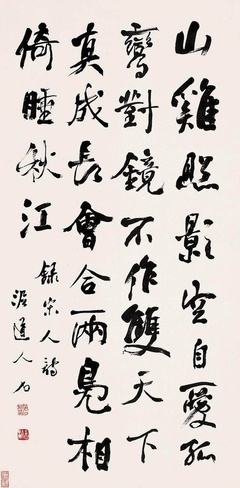 山雞照影空自愛孤
鸞對鏡不作雙天下
真成長會合兩鳧相
倚睡秋江
錄宋人詩
道人